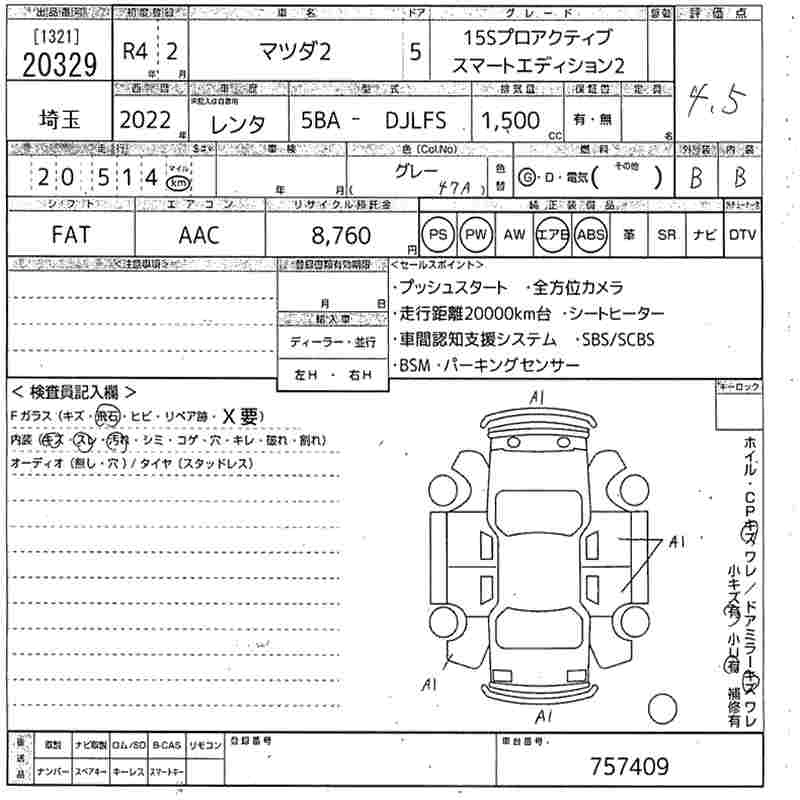 出品番号 初度登録 車名 ドア グレード 評価点
[1321]
20329
R4 年 2 月
マツダ2
5
15Sプロアクティブ
スマートエディション2
4.5
車歴 型式 排気量 保証書 定員
埼玉
2022 年
レンタ
5BA - DJLFS
1,500 CC
有・無
名
走行 車検 色(Col.No) 燃料 外装 内装
20514 マイル km
年 月
グレー
( 47A )
色替
G・D・電気( その他 )
B B
シフト エアコン リサイクル預託金 純正装備品
FAT
AAC
8,760 円
PS PW AW エアB ABS 革 SR ナビ DTV
<注意事項> 登録書類有効期限 <セールスポイント>
月 日
・プッシュスタート ・全方位カメラ
・走行距離20000km台 ・シートヒーター
・車間認知支援システム ・SBS/SCBS
・BSM ・パーキングセンサー
輸入車
ディーラー・並行
左H ・ 右H
< 検査員記入欄 >
Fガラス(キズ・飛石・ヒビ・リペア跡・X要)
内装(キズ・スレ・汚れ・シミ・コゲ・穴・キレ・破れ・割れ)
オーディオ(無し・穴)/タイヤ(スタッドレス)
キーロック
A1
A1
A1
A1
ホイル・CPキズ ワレ/ドアミラーキズ ワレ
小キズ有/小U有 補修有
後送品
取説 ナビ取説 ロム/SD B-CAS リモコン
ナンバー スペアキー キーレス スマートキー
登録番号
車台番号
757409